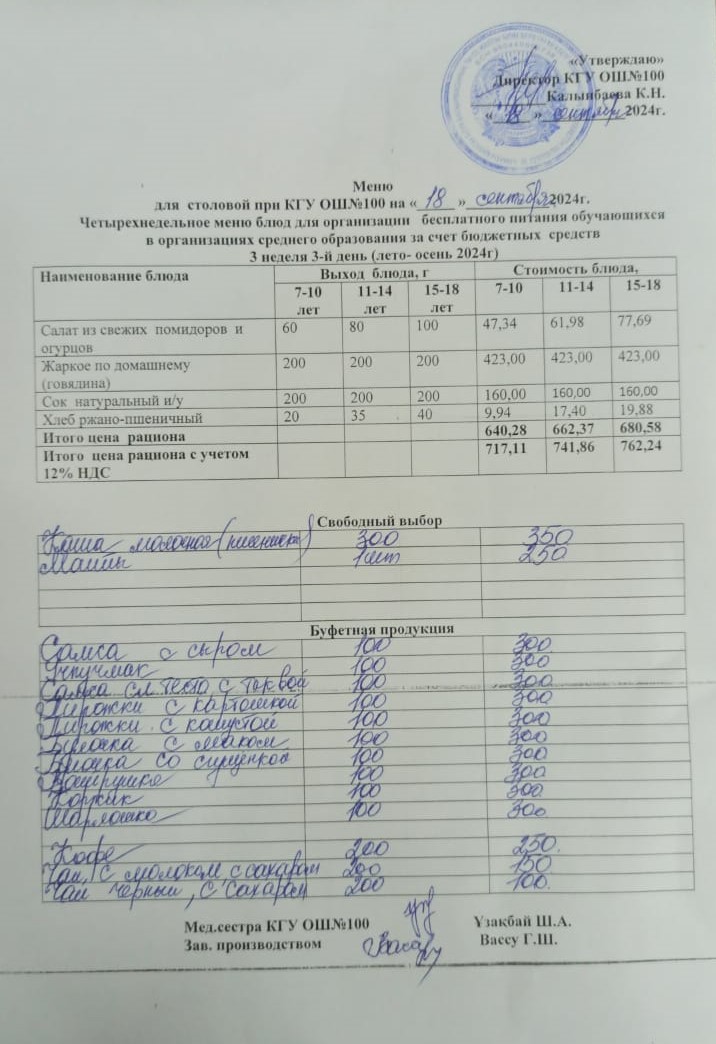 «Утверждаю»
Директор КГУ ОШ№100
Калынбаева К.Н.
« 18 » сентября 2024г.
Меню
для столовой при КГУ ОШ№100 на « 18 » сентября 2024г.
Четырехнедельное меню блюд для организации бесплатного питания обучающихся
в организациях среднего образования за счет бюджетных средств
3 неделя 3-й день (лето- осень 2024г)
Наименование блюда Выход блюда, г Стоимость блюда,
7-10 лет 11-14 лет 15-18 лет 7-10 11-14 15-18
Салат из свежих помидоров и огурцов 60 80 100 47,34 61,98 77,69
Жаркое по домашнему (говядина) 200 200 200 423,00 423,00 423,00
Сок натуральный и/у 200 200 200 160,00 160,00 160,00
Хлеб ржано-пшеничный 20 35 40 9,94 17,40 19,88
Итого цена рациона 640,28 662,37 680,58
Итого цена рациона с учетом 12% НДС 717,11 741,86 762,24
Свободный выбор
Каша молочная 300 350
Манты 1шт 250
Буфетная продукция
Самса с сыром 100 300
Учпучмак 100 300
Самса сл.тесто с 100 300
Пирожки с картошкой 100 300
Пирожки с капустой 100 300
Булочка с маком 100 300
Булочка со сгущенкой 100 300
Ватрушка 100 300
Коржик 100 300
100 300
Кофе 200 250.
Чай с молоком с сахаром 200 150
Чай черный, с сахаром 200 100.
Мед.сестра КГУ ОШ№100 Ұзақбай Ш.А.
Зав. производством Вассу Г.Ш.